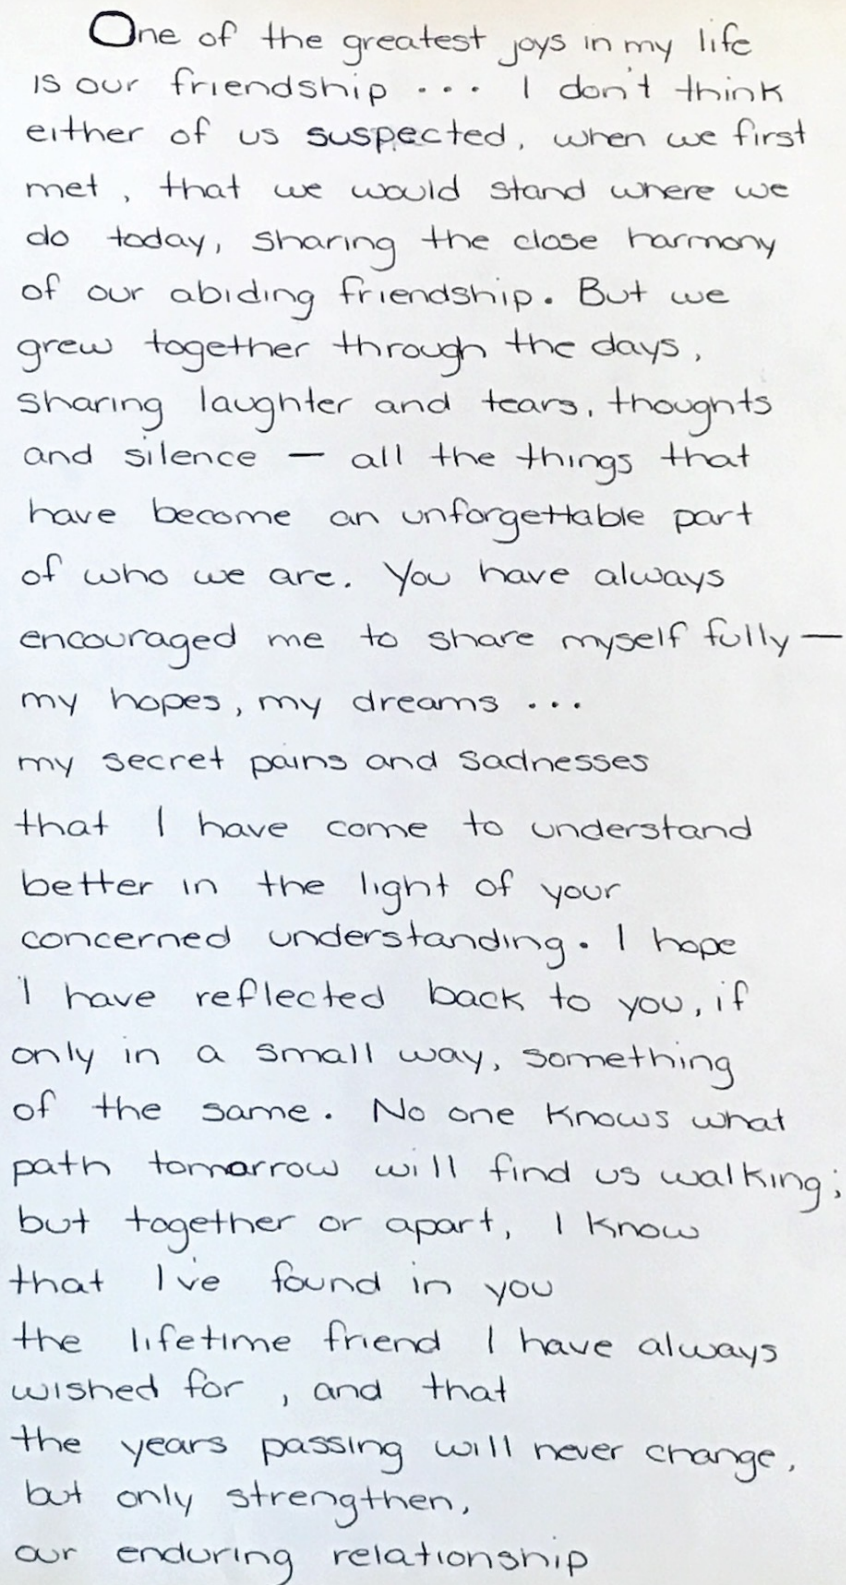 One of the greatest joys in my life
is our friendship ... I don't think
either of us suspected, when we first
met, that we would stand where we
do today, sharing the close harmony
of our abiding friendship. But we
grew together through the days,
sharing laughter and tears, thoughts
and silence — all the things that
have become an unforgettable part
of who we are. You have always
encouraged me to share myself fully —
my hopes, my dreams ...
my secret pains and sadnesses
that I have come to understand
better in the light of your
concerned understanding. I hope
I have reflected back to you, if
only in a small way, something
of the same. No one knows what
path tomorrow will find us walking;
but together or apart, I know
that I've found in you
the lifetime friend I have always
wished for, and that
the years passing will never change,
but only strengthen,
our enduring relationship